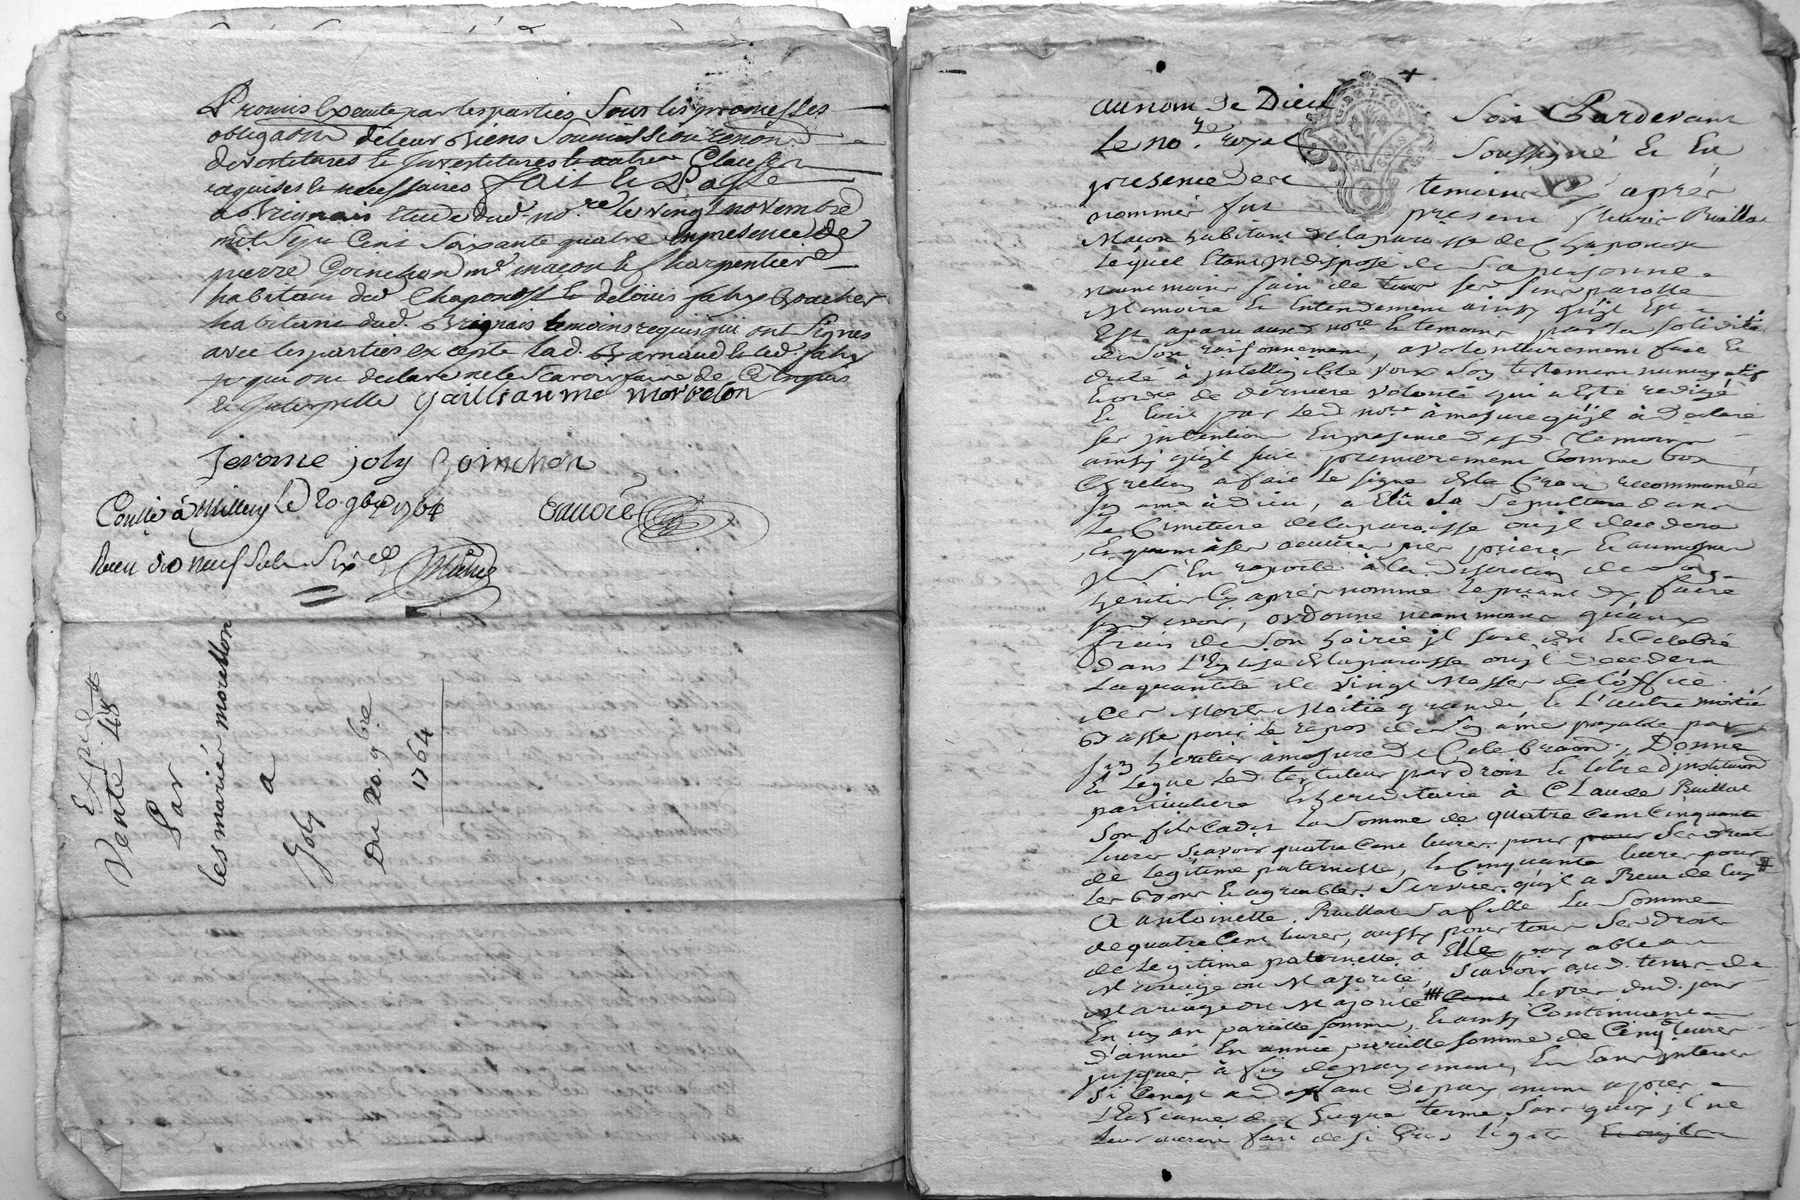 Promis Executé par lesparties Sous les promesses
obligation de leur Biens Soumission renon.
devestitures et Investitures et autres Clauses
requises et necessaires fait et Passé
a Brignais Etude dud. no.re le vingt novembre
mil Sept Cent Soixante quatre En presence de
pierre Goinchon m.e macon et Charpentier
habitant dud. Chaponost et de loüis fahy Boucher
habitant dud. Brignais temoins requis qui ont Signés
avec les parties excepté lad. Barnaud et led. fahy
qui ont declaré ne le Scavoir faire de Ce Enquis
et Interpellé Gailliaume morbelon
jerome joly Goinchon
Conllé à Millery le 20 9bre 1764
Reçu dix neuf Sols Six d
Expéd.
Vente 48
Par
les mariés morellon
a
Joly
Du 20. 9bre
1764
au nom de Dieu Soit Pardevant
Le no.re royal Soussigné Et En
presence des temoins Cy après
nommés fut present Ruillat
Macon habitant de la paroisse de Chaponost
Lequel Etant Indisposé de Sa personne
neanmoins sain de tous ses sens parolle
Memoire et Entendement ainsy qu'il Est
Est aparu aud. no.re et temoins par la solidité
de son raisonnement, a volontairement fait et
dicté à jntelligible voix son testament nuncupatif
et ordre de derniere volonté qui a Eté redigé
Et Ecrit par led. no.re à mesure qu'il à déclaré
ses jntention En presence desd. temoins
ainsy qu'il suit premierement Comme bon
Chretien a fait le signe de la Croix recommandé
son ame à dieu, a Elû sa sepulture dans
le Cimetiere de la paroisse ou jl decedera
Et quant à ses oeuvres pies prieres et aumones
jl s'En raporte à la discretion de son
heritier Cy après nommé le priant d'y faire
son devoir, ordonne neanmoins qu'aux
frais de son hoirie jl soit dit et Celebré
dans L'Eglise de la paroisse ou jl decedera
la quantité de vingt Messes de l'office
des Morts Moitié grande et L'autre moitié
Basse pour le repos de son ame payable par
son heritier amesure de Celebraon. Donne
Et Legue led. testateur par droit et titre d'jnstitution
particuliere Et hereditaire à Claude Ruillat
son fils cadet la somme de quatre Cent Cinquante
livres scavoir quatre Cent livres pour pour ses droits
de Légitime paternelle, et Cinquante livres pour
les bons et agreables services qu'jl a Reçu de luy #
a antoinette Ruillat sa fille la somme
de quatre Cent livres, aussy pour tous ses droits
de Légitime paternelle, a Elle payable au
Mariage ou Majorité, scavoir aud. tems de
Mariage ou Majorité
En un an pareille somme, Et ainsy Continuant
d'année En année pareille somme de livres
jusques à fin de payement, Et sans jnterets
si Cen'est à deffaut de payement après
l'Echeance de Chaque terme, sans quoy jl ne
leur auroit fait de si Gros Legats